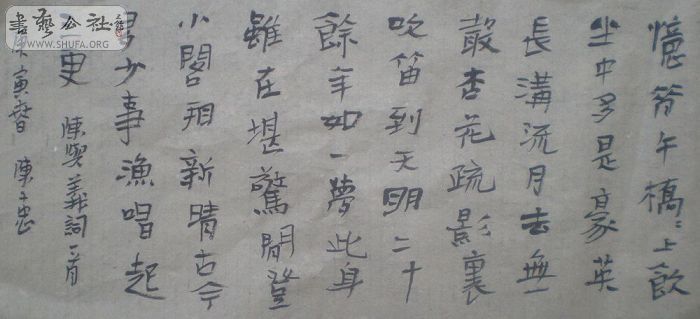 憶昔午橋〻上飲
坐中多是豪英
長溝流月去無
聲杏花疏影裏
吹笛到天明二十
餘年如一夢此身
雖在堪驚閒登
小閣眺新晴古今
多少事漁唱起
三更 陳與義詞一首
庚寅春 陳忠
書藝公社
WWW.SHUFA.ORG